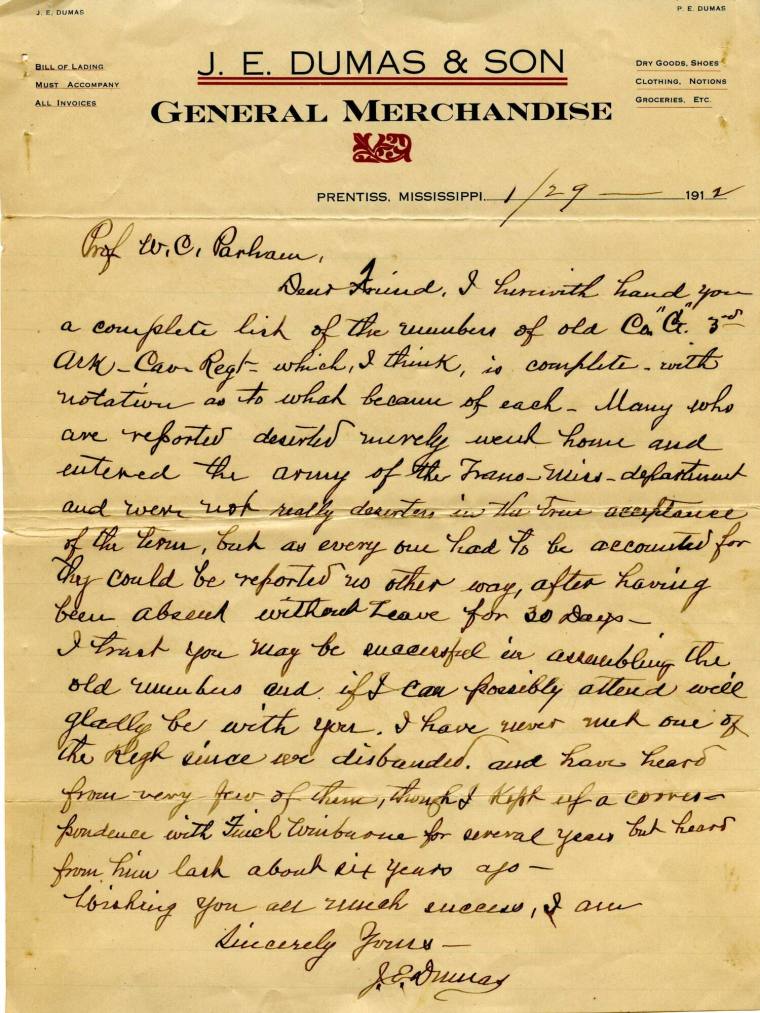 J. E. DUMAS
P. E. DUMAS
J. E. DUMAS & SON
BILL OF LADING
MUST ACCOMPANY
ALL INVOICES
DRY GOODS, SHOES
CLOTHING, NOTIONS
GROCERIES, ETC.
GENERAL MERCHANDISE
PRENTISS, MISSISSIPPI, 1/29 — 1912
Prof W. C. Parham,
Dear Friend, I herewith hand you
a complete list of the members of old Co. "G" 3rd
Ark - Cav Regt - which, I think, is complete - with
notation as to what became of each - Many who
are reported deserted merely went home and
entered the army of the Trans-Miss-department
and were not really deserters in the true acceptance
of the term, but as every one had to be accounted for
they could be reported no other way, after having
been absent without Leave for 30 Days -
I trust you may be successful in assembling the
old members and if I can possibly attend will
gladly be with you. I have never met one of
the Regt since we disbanded. and have heard
from very few of them, though I Kept up a corres-
pondence with Finch Winburne for several years but heard
from him last about six years ago -
Wishing you all much success, I am
Sincerely Yours -
J. E. Dumas